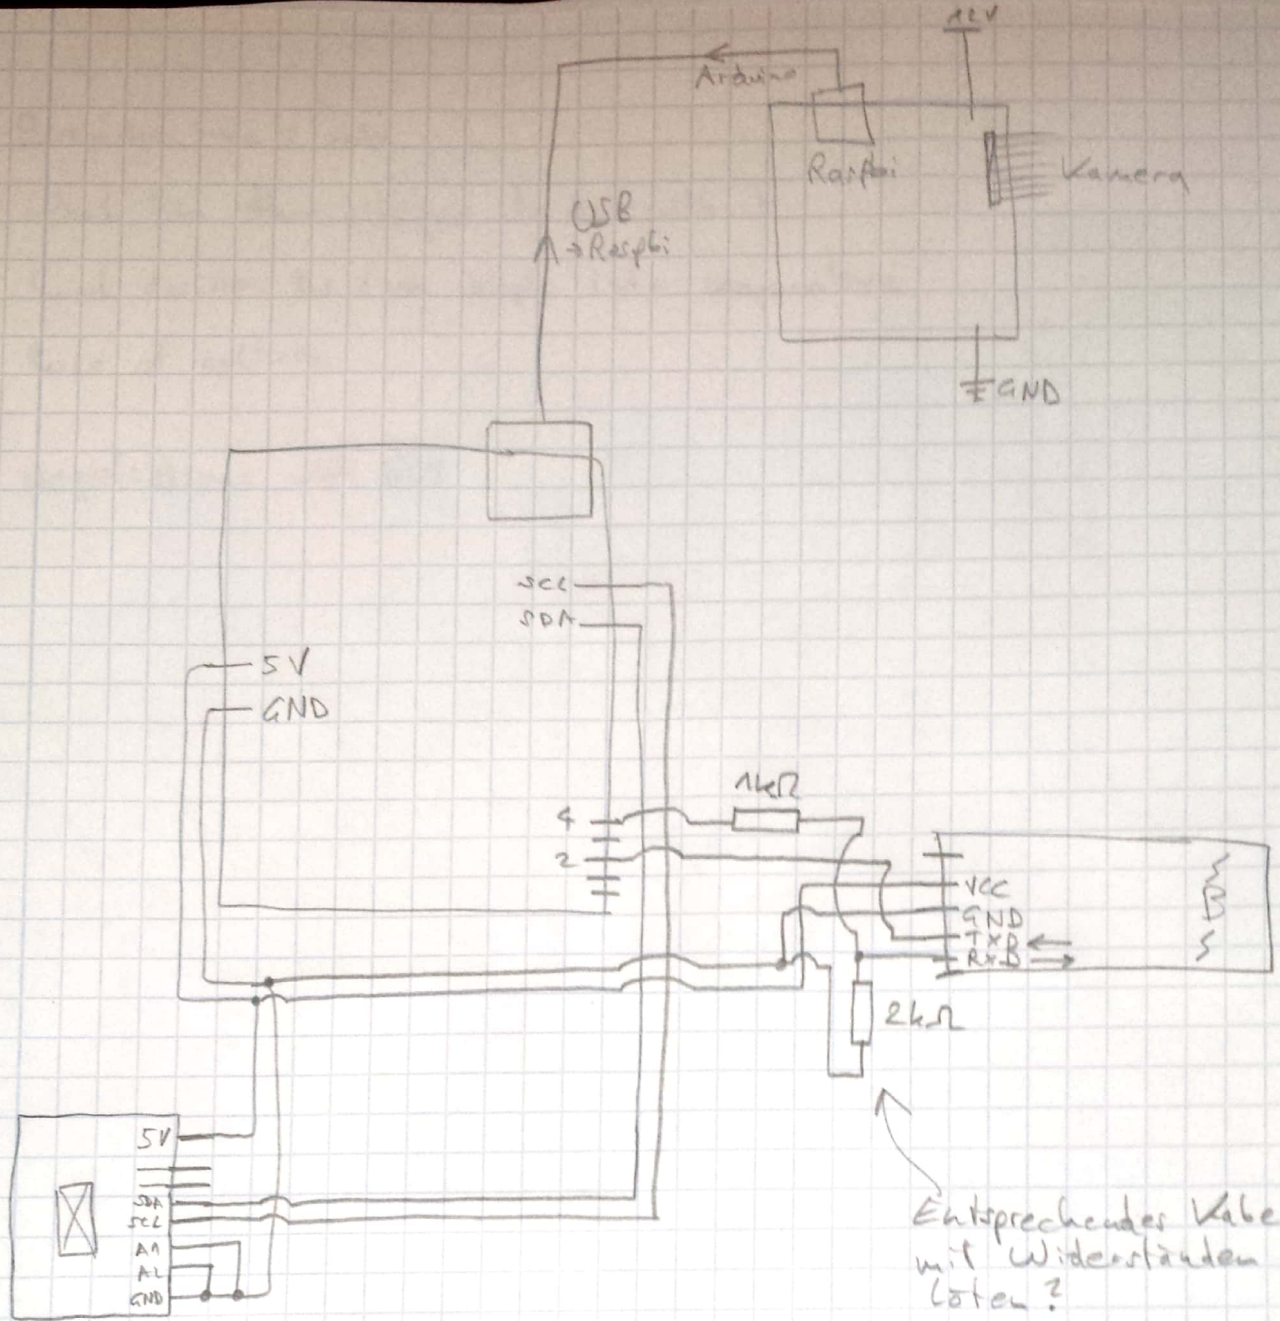 12V
Arduino
Raspbi
Kamera
USB
→Raspbi
GND
SCL
SDA
5V
GND
1kΩ
4
2
VCC
GND
TXD
RXD
B
2kΩ
5V
SDA
SCL
A1
A2
GND
Entsprechendes Kabe
mit Widerständen
löten?